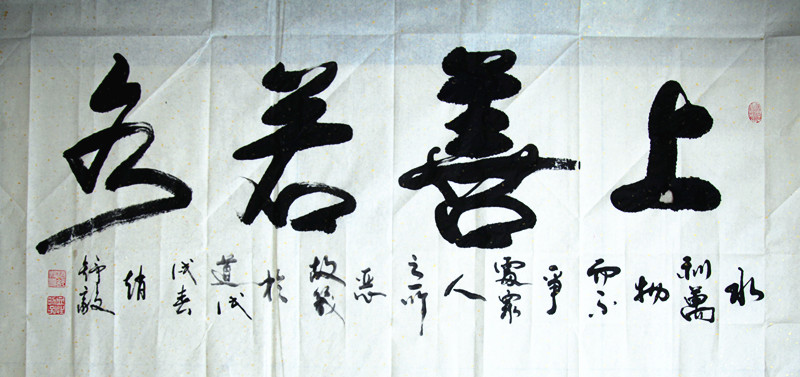 上善若水
水利萬物而不爭處眾人之所惡故幾於道戊戌春